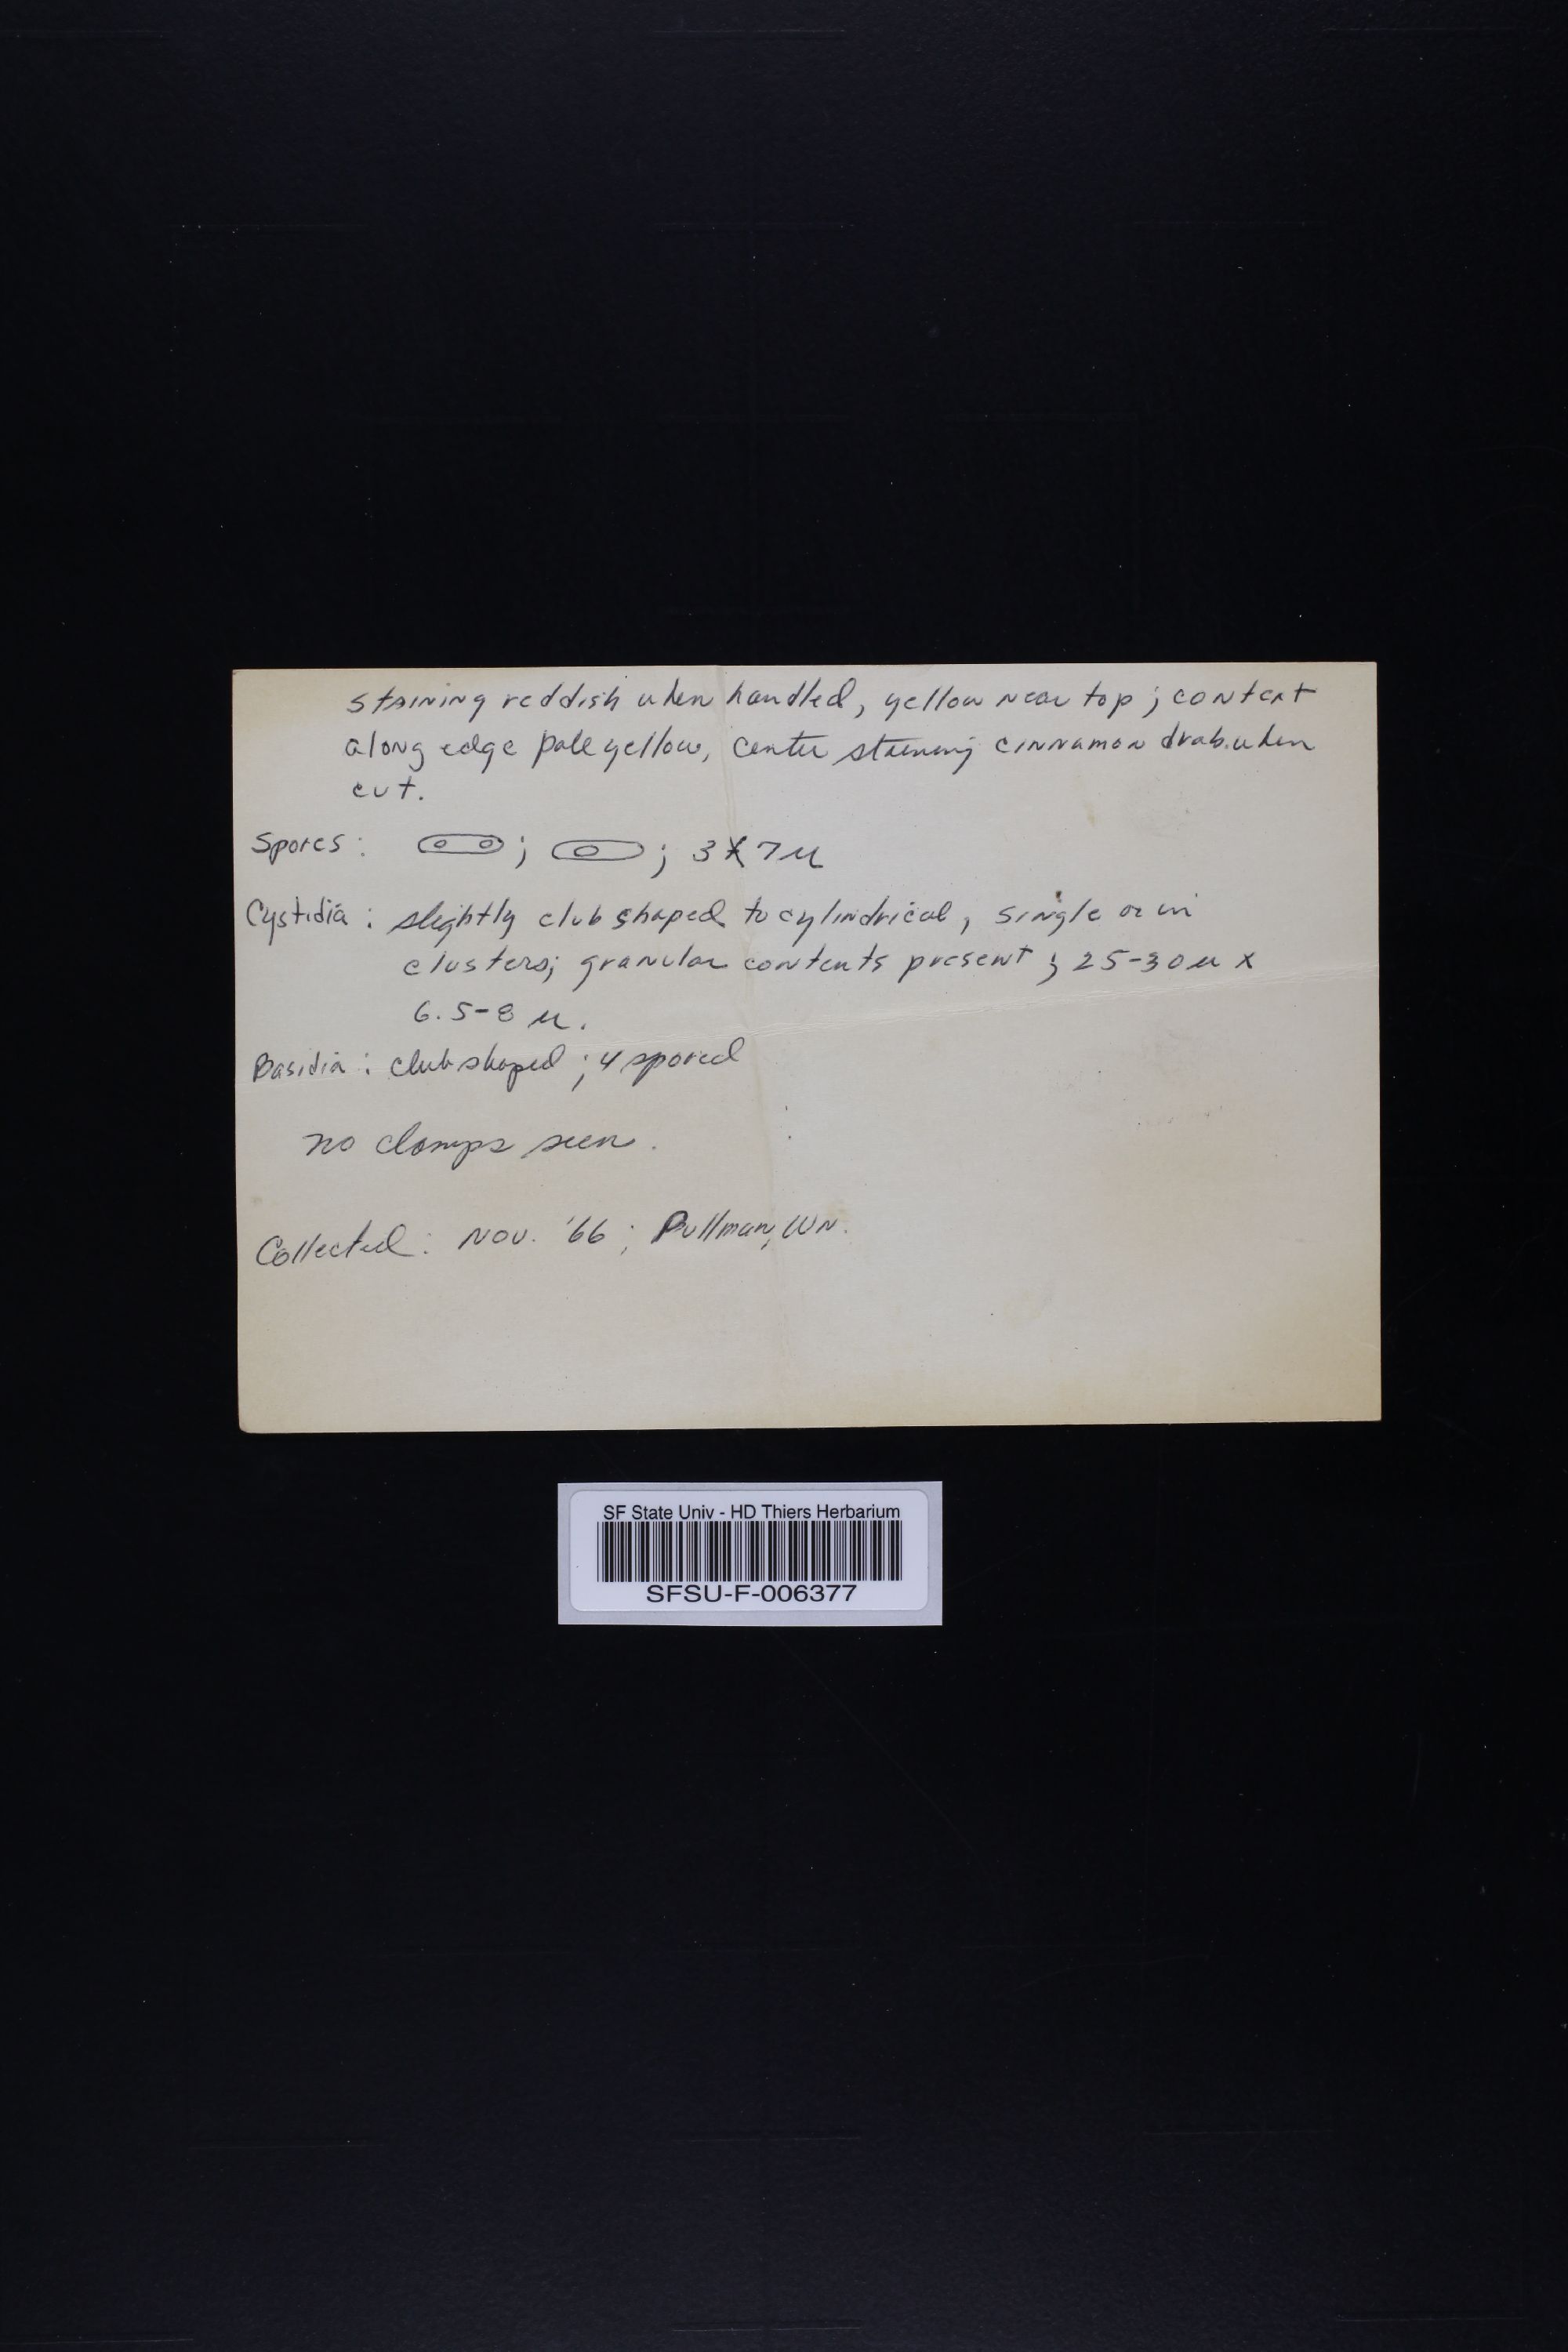 staining reddish when handled, yellow near top; context
along edge pale yellow, center staining cinnamon drab when
cut.
Spores: ; ; 3 X 7 μ
Cystidia: slightly club shaped to cylindrical, single or in
clusters; granular contents present; 25-30 μ x
6.5-8 μ.
Basidia: club shaped; 4 spored
no clamps seen.
Collected: Nov. '66; Pullman, WN.
SF State Univ - HD Thiers Herbarium
SFSU-F-006377